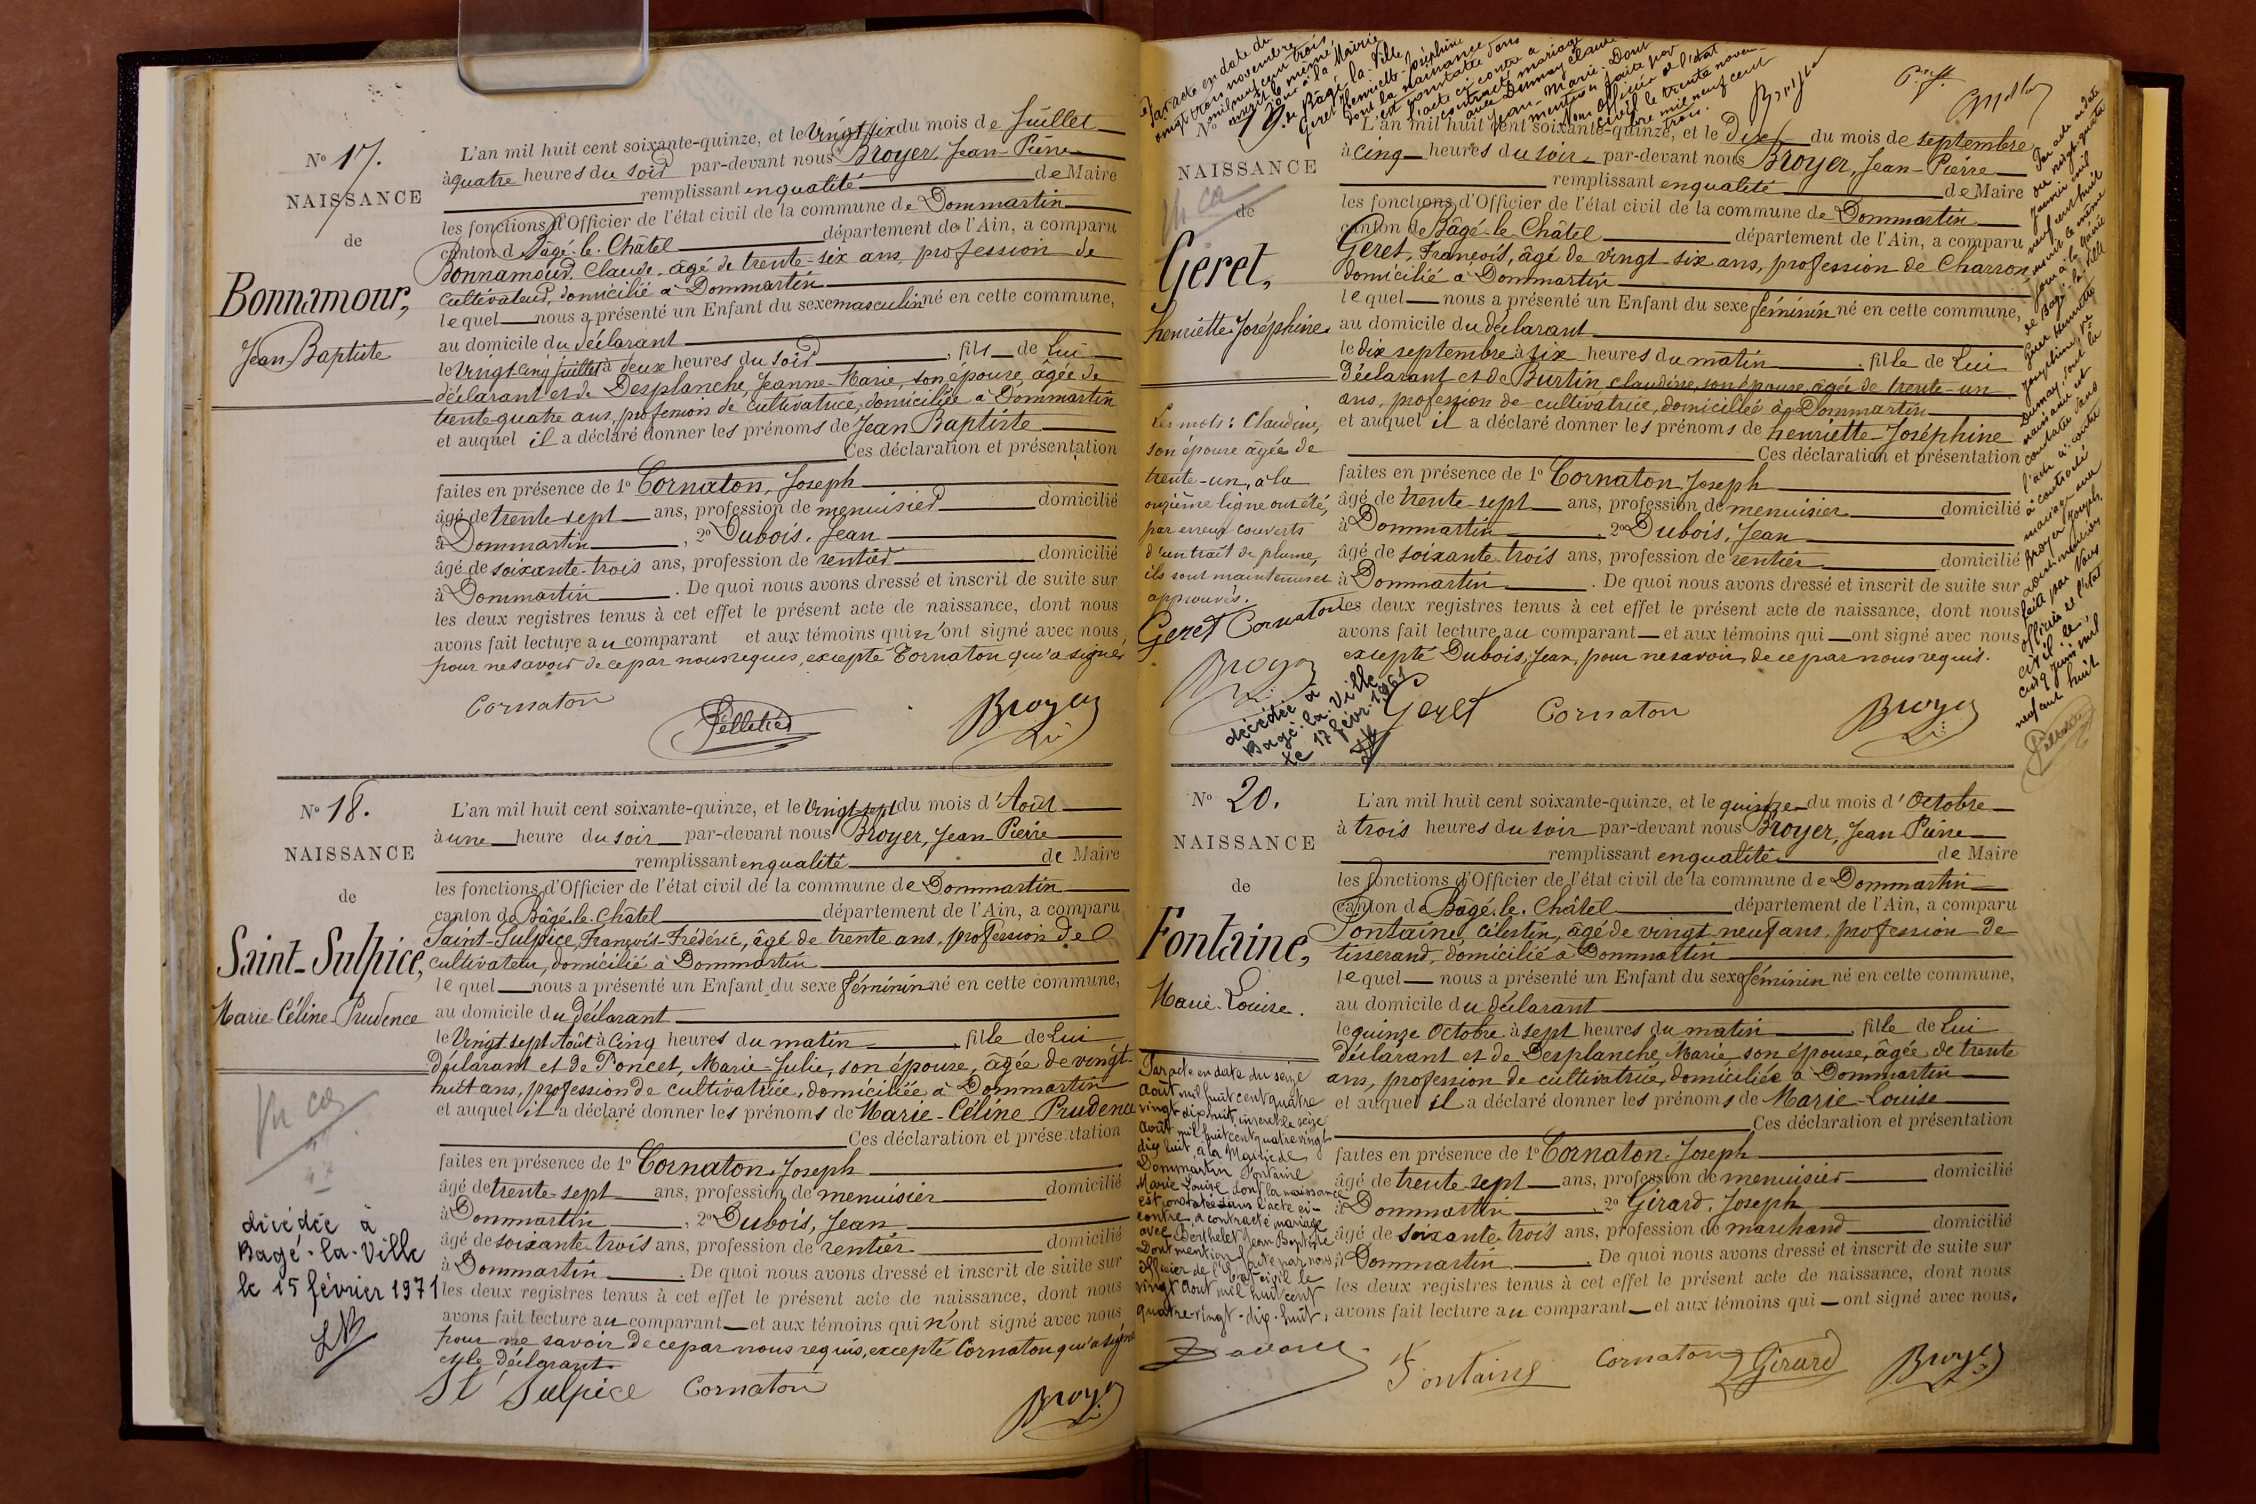 N° 17.
NAISSANCE
de
Bonnamour,
Jean Baptiste
L'an mil huit cent soixante-quinze, et le Vingt six du mois de Juillet
à quatre heures du soir par-devant nous Broyer, Jean-Pierre
remplissant en qualité de Maire
les fonctions d'Officier de l'état civil de la commune de Dommartin
canton de Bâgé-le-Châtel département de l'Ain, a comparu
Bonnamour, Claude, âgé de trente-six ans, profession de
cultivateur, domicilié à Dommartin
lequel nous a présenté un Enfant du sexe masculin né en cette commune,
au domicile du déclarant
le Vingt cinq Juillet à deux heures du soir, fils de Lui
déclarant et de Desplanche, Jeanne-Marie, son épouse, âgée de
trente-quatre ans, profession de cultivatrice, domiciliée à Dommartin
et auquel il a déclaré donner les prénoms de Jean Baptiste
Ces déclaration et présentation
faites en présence de 1° Cornaton, Joseph
âgé de trente-sept ans, profession de menuisier domicilié
à Dommartin, 2° Dubois, Jean
âgé de soixante-trois ans, profession de rentier domicilié
à Dommartin. De quoi nous avons dressé et inscrit de suite sur
les deux registres tenus à cet effet le présent acte de naissance, dont nous
avons fait lecture au comparant et aux témoins qui n'ont signé avec nous,
pour ne savoir de ce par nous requis, excepté Cornaton qui a signé
Cornaton Pelletier Broyer
N° 18.
NAISSANCE
de
Saint-Sulpice,
Marie-Céline-Prudence
décédée à
Bagé-la-Ville
le 15 février 1971
L'an mil huit cent soixante-quinze, et le Vingt-sept du mois d'Août
à une heure du soir par-devant nous Broyer, Jean-Pierre
remplissant en qualité de Maire
les fonctions d'Officier de l'état civil de la commune de Dommartin
canton de Bâgé-le-Châtel département de l'Ain, a comparu
Saint-Sulpice, François-Frédéric, âgé de trente ans, profession de
cultivateur, domicilié à Dommartin
lequel nous a présenté un Enfant du sexe féminin né en cette commune,
au domicile du déclarant
le Vingt-sept Août à Cinq heures du matin, fille de Lui
déclarant et de Poncet, Marie-Julie, son épouse, âgée de vingt-
huit ans, profession de cultivatrice, domiciliée à Dommartin
et auquel il a déclaré donner les prénoms de Marie-Céline-Prudence
Ces déclaration et présentation
faites en présence de 1° Cornaton, Joseph
âgé de trente-sept ans, profession de menuisier domicilié
à Dommartin, 2° Dubois, Jean
âgé de soixante-trois ans, profession de rentier domicilié
à Dommartin. De quoi nous avons dressé et inscrit de suite sur
les deux registres tenus à cet effet le présent acte de naissance, dont nous
avons fait lecture au comparant et aux témoins qui n'ont signé avec nous
pour ne savoir de ce par nous requis, excepté Cornaton qui a signé
et le déclarant.
St Sulpice Cornaton Broyer
Par acte en date du
vingt trois novembre
mil neuf cent trois
inscrit le même
jour à la Mairie
de Bagé-la-Ville
Geret Henriette-Joséphine
dont la naissance
est constatée dans
l'acte ci-contre a
contracté mariage
avec Dumay Claude
Jean-Marie. Dont
mention faite par
Nous Officier de l'état
civil le trente novem-
bre mil neuf cent
trois.
N° 19.
NAISSANCE
de
Geret,
henriette-Joséphine
Les mots: Claudine,
son épouse âgée de
trente-un, à la
onzième ligne ont été,
par erreur couverts
d'un trait de plume,
ils sont maintenus et
approuvés.
Geret Cornaton
Broyer
décédée à
Bagé-la-Ville
le 17 févr. 1961
L'an mil huit cent soixante-quinze, et le Dix du mois de septembre
à cinq heures du soir par-devant nous Broyer, Jean-Pierre
remplissant en qualité de Maire
les fonctions d'Officier de l'état civil de la commune de Dommartin
canton de Bâgé-le-Châtel département de l'Ain, a comparu
Geret, François, âgé de vingt-six ans, profession de Charron,
domicilié à Dommartin
lequel nous a présenté un Enfant du sexe féminin né en cette commune,
au domicile du déclarant
le dix septembre à six heures du matin, fille de Lui
déclarant et de Burtin claudine, son épouse, âgée de trente-un
ans, profession de cultivatrice, domiciliée à Dommartin
et auquel il a déclaré donner les prénoms de henriette-Joséphine
Ces déclaration et présentation
faites en présence de 1° Cornaton, Joseph
âgé de trente-sept ans, profession de menuisier domicilié
à Dommartin, 2° Dubois, Jean
âgé de soixante-trois ans, profession de rentier domicilié
à Dommartin. De quoi nous avons dressé et inscrit de suite sur
les deux registres tenus à cet effet le présent acte de naissance, dont nous
avons fait lecture au comparant et aux témoins qui ont signé avec nous,
excepté Dubois, Jean, pour ne savoir, de ce par nous requis.
Geret Cornaton Broyer
Par acte en date
du vingt-quatre
janvier mil
neuf cent huit
inscrit le même
jour à la Mairie
de Bagé-la-Ville
Geret Henriette
Joséphine, ve
Dumay, dont la
naissance est
constatée dans
l'acte ci-contre
a contracté
mariage avec
Broyer Joseph.
Dont mention
faite par Nous
officier de l'état
civil le
cinq juin mil
neuf cent huit
Pelletier
N° 20.
NAISSANCE
de
Fontaine,
Marie-Louise.
Par acte en date du seize
Août mil huit cent quatre
vingt-dix huit, inscrit le seize
Août mil huit cent quatre vingt-
dix huit, à la Mairie de
Dommartin Fontaine
Marie Louise dont la naissance
est constatée dans l'acte ci-
contre, a contracté mariage
avec Berthelet Jean Baptiste
Dont mention faite par nous,
Officier de l'état civil le
vingt Août mil huit cent
quatre-vingt-dix-huit,
L'an mil huit cent soixante-quinze, et le quinze du mois d'Octobre
à trois heures du soir par-devant nous Broyer, Jean-Pierre
remplissant en qualité de Maire
les fonctions d'Officier de l'état civil de la commune de Dommartin
canton de Bâgé-le-Châtel département de l'Ain, a comparu
Fontaine, Célestin, âgé de vingt-neuf ans, profession de
tisserand, domicilié à Dommartin
lequel nous a présenté un Enfant du sexe féminin né en cette commune,
au domicile du déclarant
le quinze Octobre à sept heures du matin, fille de Lui
déclarant et de Desplanche, Marie, son épouse, âgée de trente
ans, profession de cultivatrice, domiciliée à Dommartin
et auquel il a déclaré donner les prénoms de Marie-Louise
Ces déclaration et présentation
faites en présence de 1° Cornaton, Joseph
âgé de trente-sept ans, profession de menuisier domicilié
à Dommartin, 2° Girard, Joseph
âgé de soixante-trois ans, profession de marchand domicilié
à Dommartin. De quoi nous avons dressé et inscrit de suite sur
les deux registres tenus à cet effet le présent acte de naissance, dont nous
avons fait lecture au comparant et aux témoins qui ont signé avec nous.
Fontaine Cornaton Girard Broyer